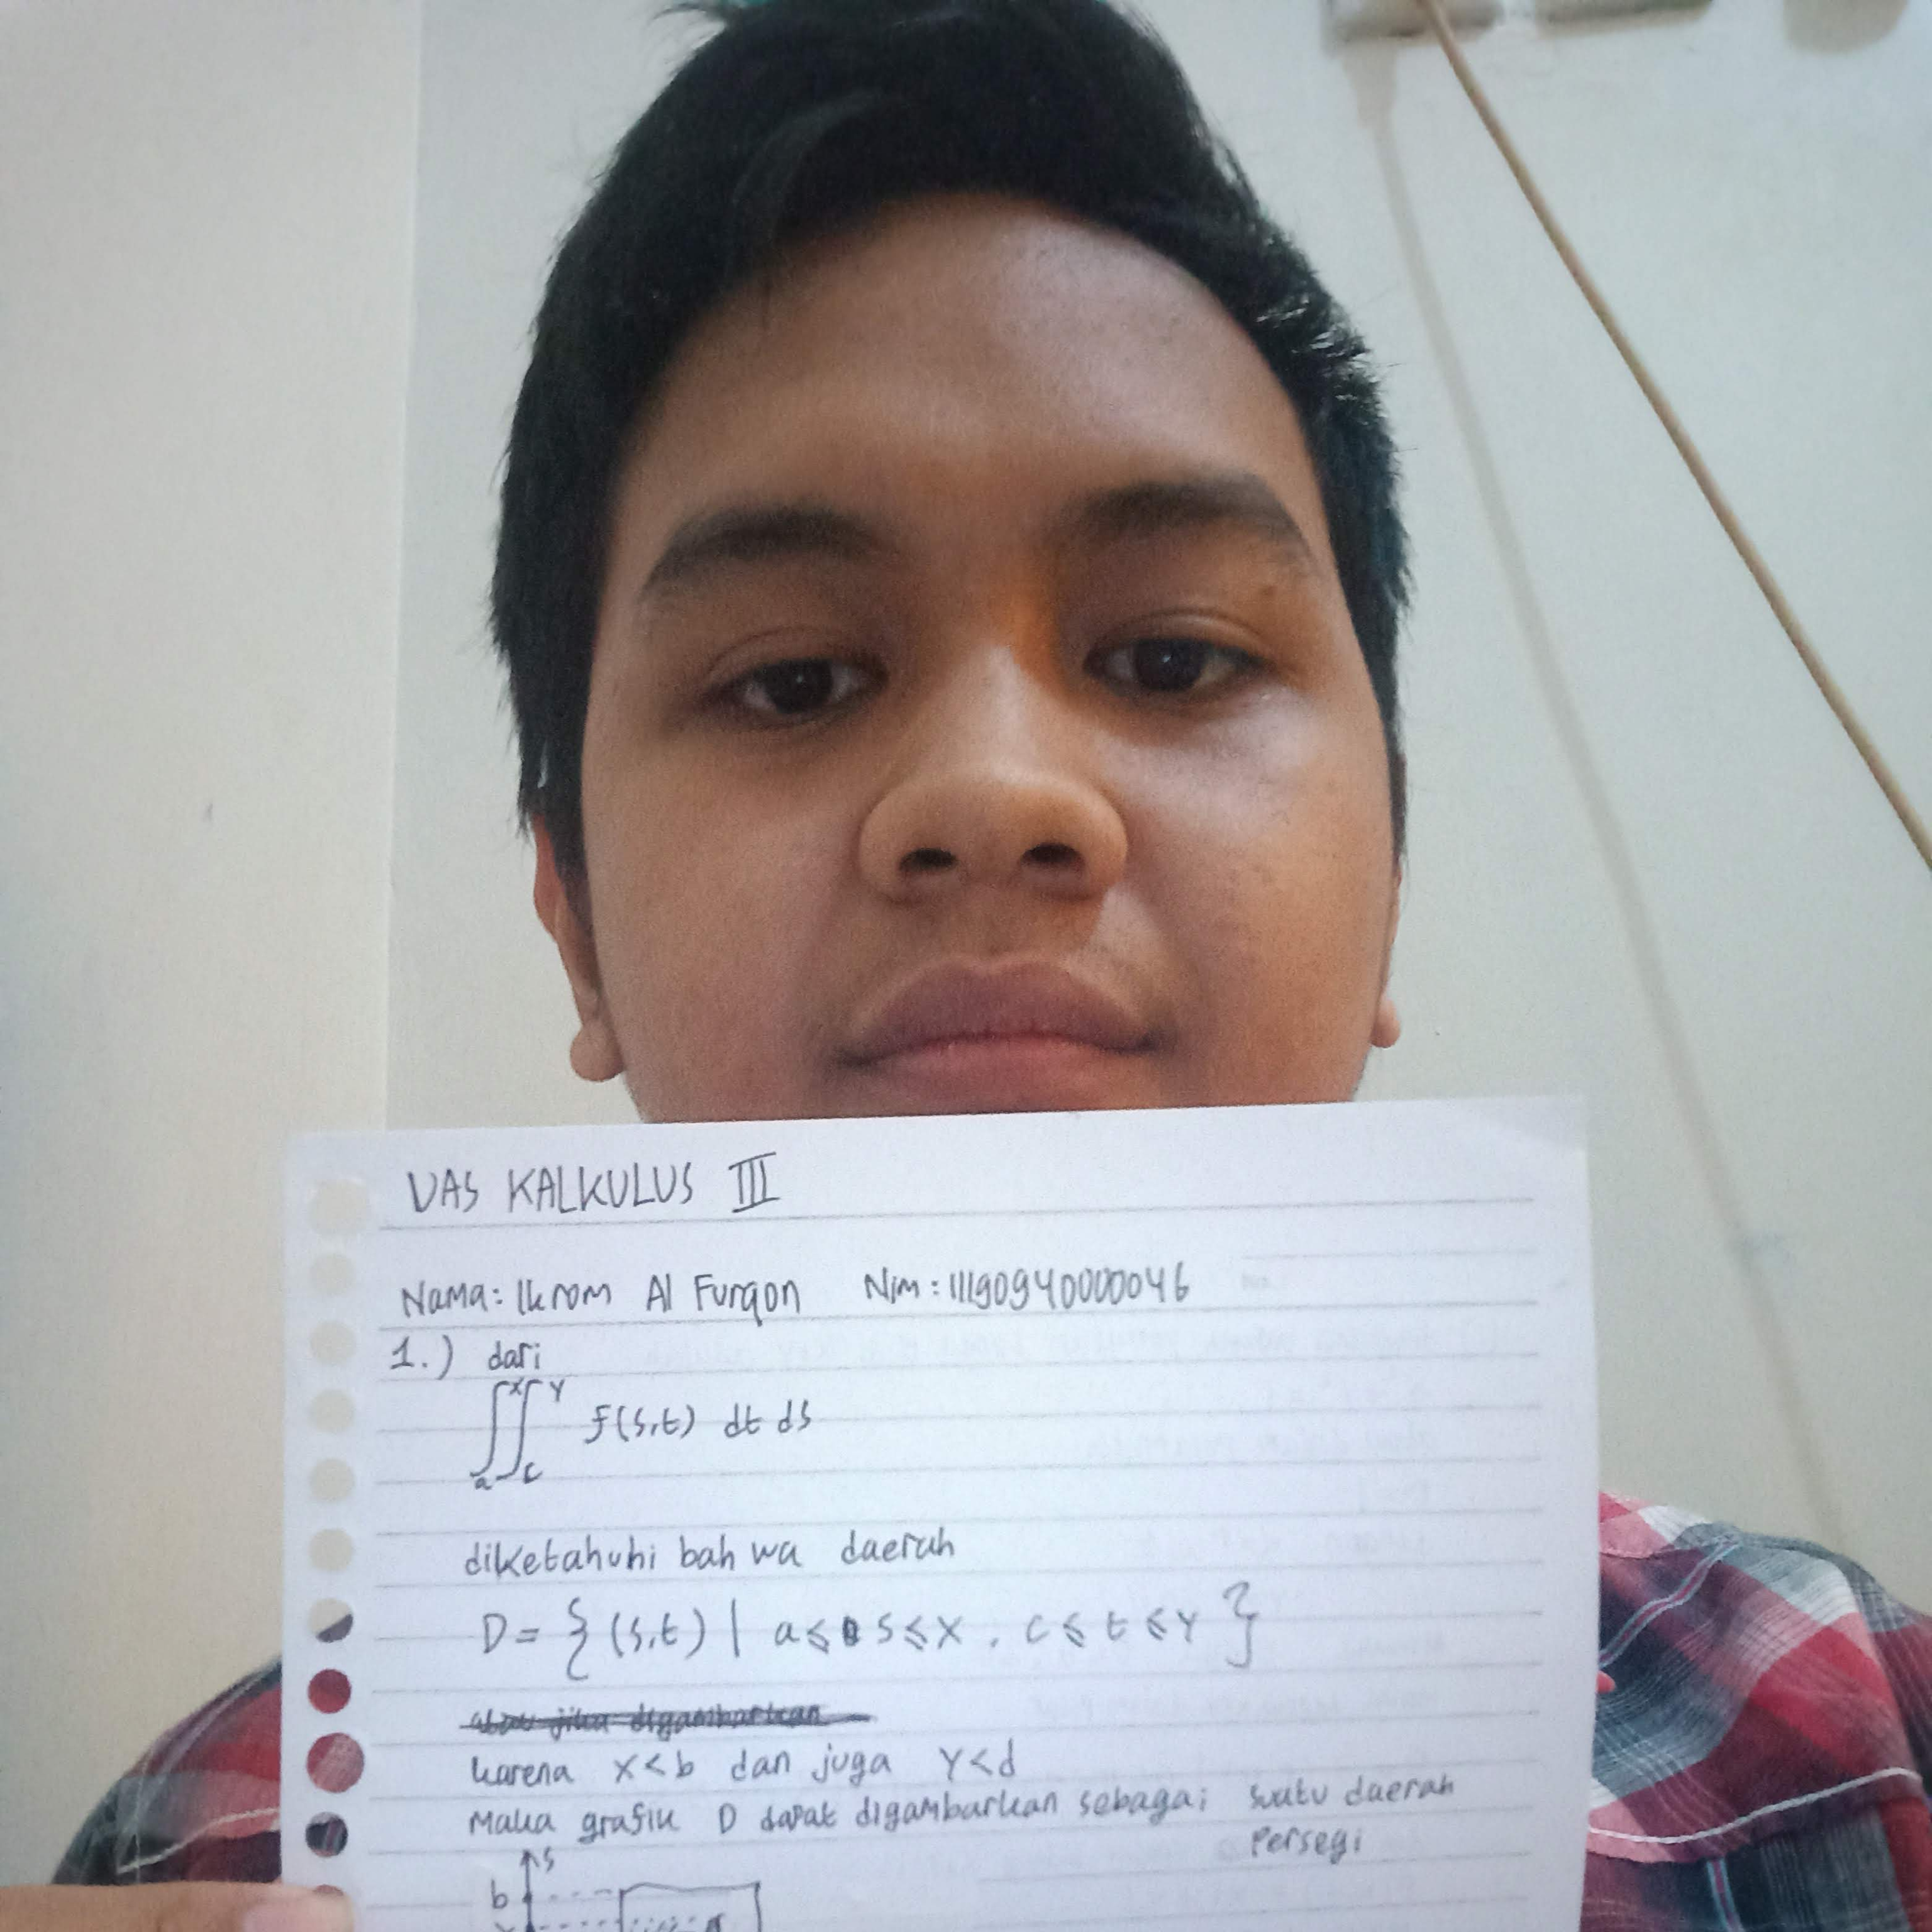 UAS KALKULUS III
Nama: Ikrom Al Furqon Nim: 11190940000046
1.) dari
∫ₐˣ∫꜀ʸ f(s,t) dt ds
diketahuhi bahwa daerah
D = {(s,t) | a ≤ s ≤ x , c ≤ t ≤ y }
atau jika digambarkan
karena x<b dan juga y<d
Maka grafik D dapat digambarkan sebagai suatu daerah
Persegi
s
b